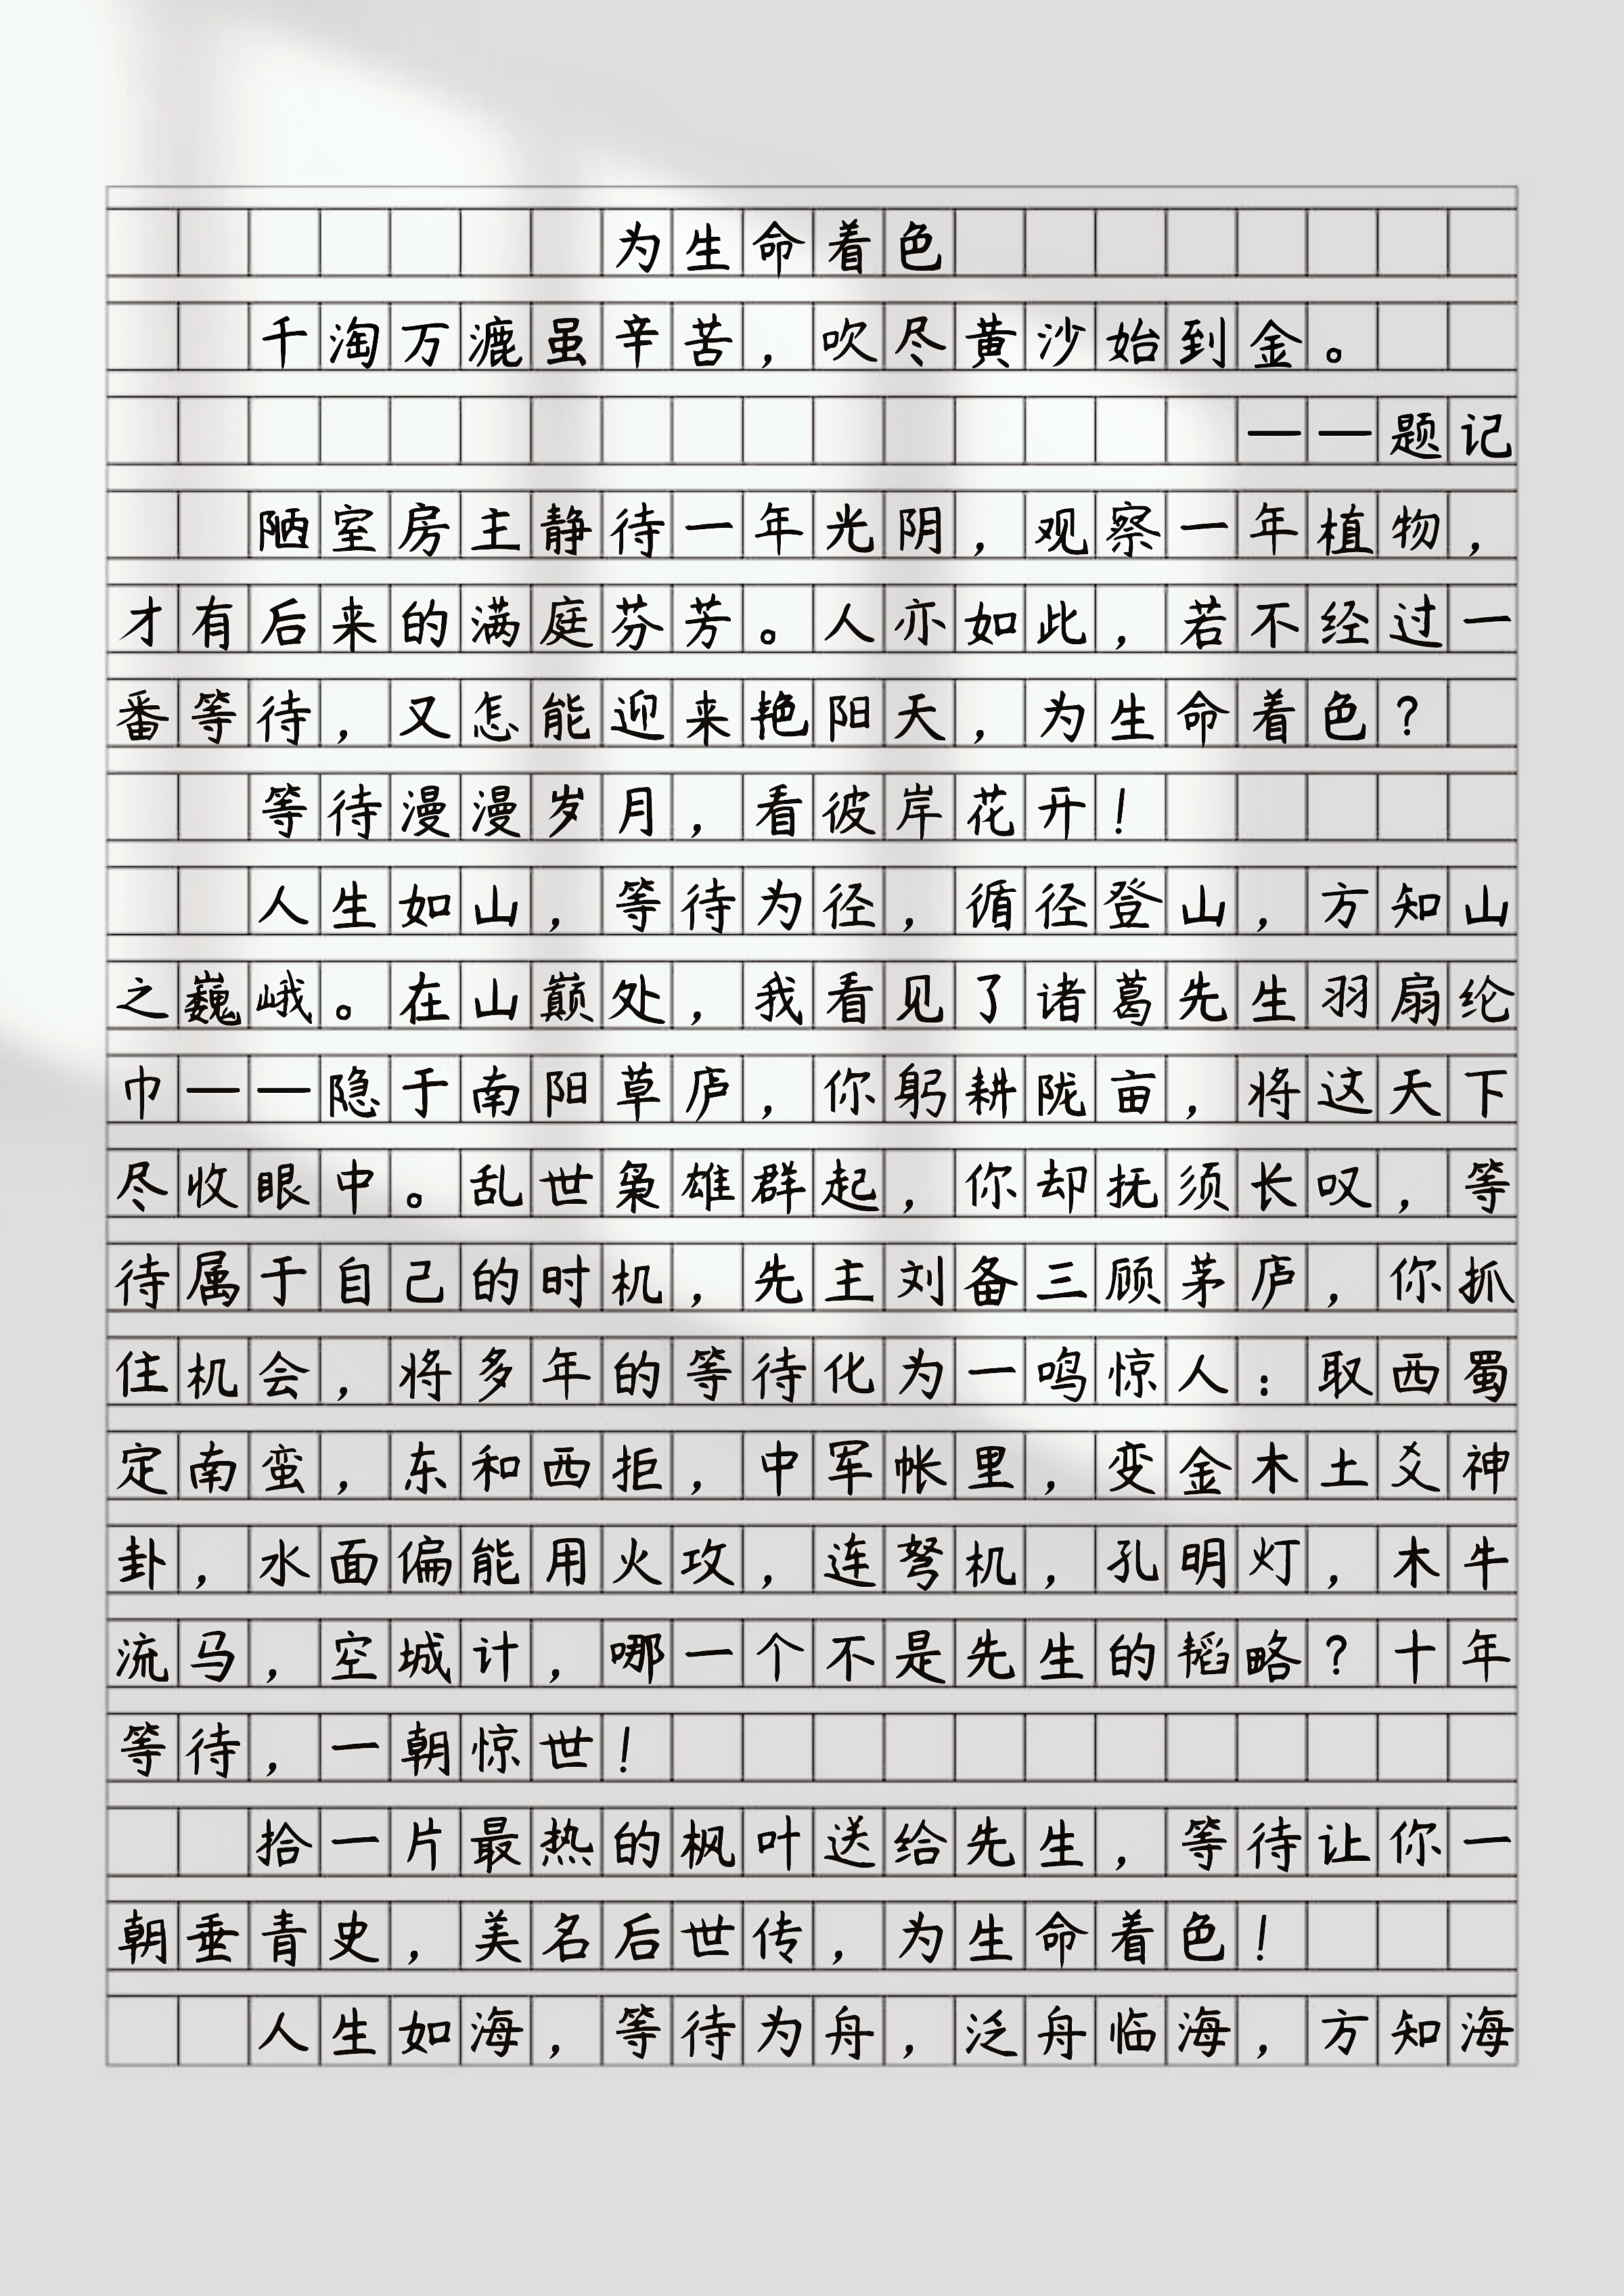 为生命着色
千淘万漉虽辛苦，吹尽黄沙始到金。
——题记
陋室房主静待一年光阴，观察一年植物，
才有后来的满庭芬芳。人亦如此，若不经过一
番等待，又怎能迎来艳阳天，为生命着色？
等待漫漫岁月，看彼岸花开！
人生如山，等待为径，循径登山，方知山
之巍峨。在山巅处，我看见了诸葛先生羽扇纶
巾——隐于南阳草庐，你躬耕陇亩，将这天下
尽收眼中。乱世枭雄群起，你却抚须长叹，等
待属于自己的时机，先主刘备三顾茅庐，你抓
住机会，将多年的等待化为一鸣惊人：取西蜀
定南蛮，东和西拒，中军帐里，变金木土爻神
卦，水面偏能用火攻，连弩机，孔明灯，木牛
流马，空城计，哪一个不是先生的韬略？十年
等待，一朝惊世！
拾一片最热的枫叶送给先生，等待让你一
朝垂青史，美名后世传，为生命着色！
人生如海，等待为舟，泛舟临海，方知海